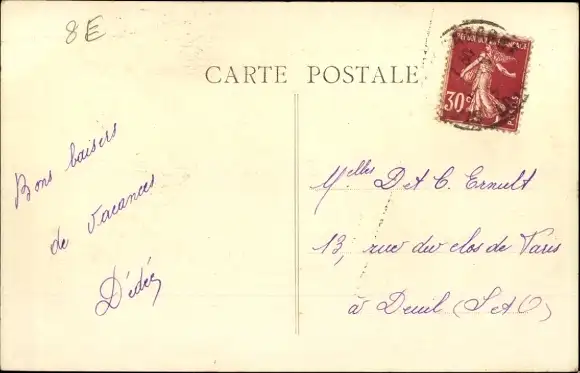 8E
CARTE POSTALE
30c
Bons baisers
de vacances
Dédée
Melles D et C. Ernult
13, rue du clos de Paris
à Deuil (S et O)